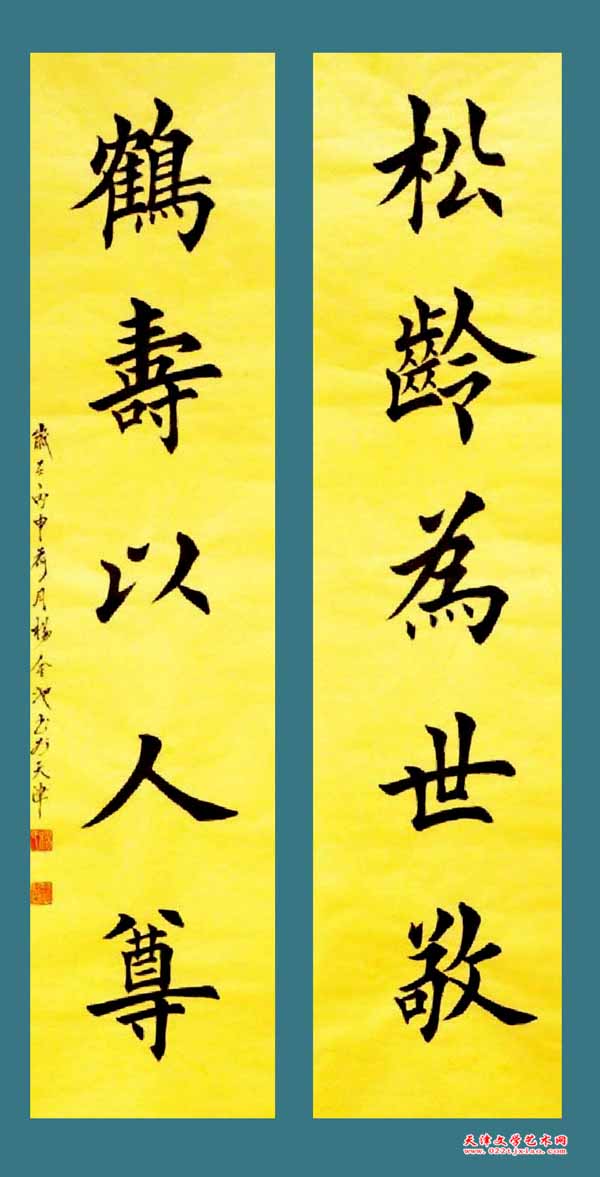 松齡為世敬
鶴壽以人尊
歲在丙申荷月楊金池書於天津
天津文学艺术网
www.022tjxiao.com